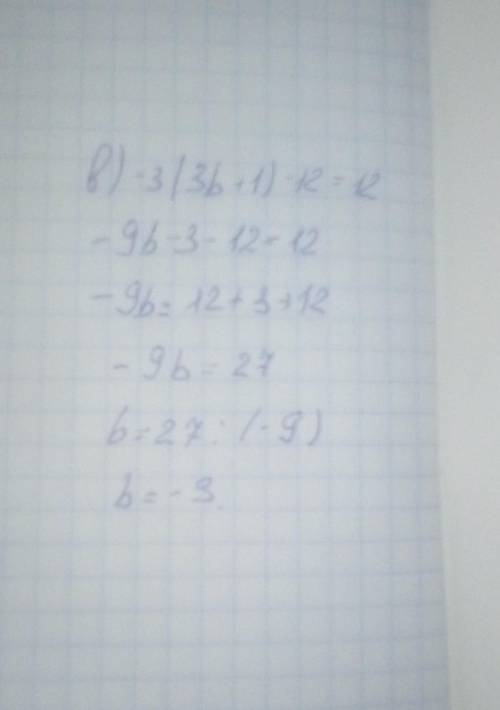 в) -3(3b+1)-12=12
-9b-3-12=12
-9b=12+3+12
-9b=27
b=27:(-9)
b=-3.